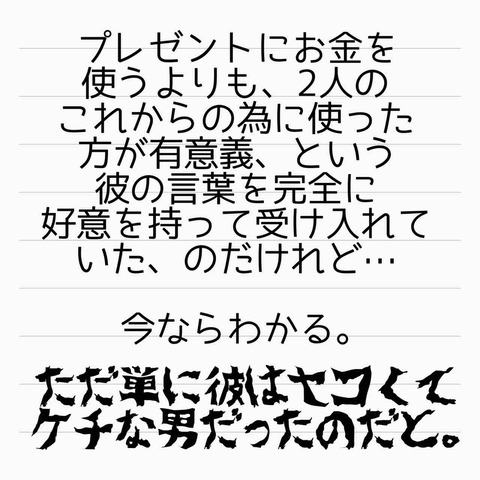 プレゼントにお金を
使うよりも、2人の
これからの為に使った
方が有意義、という
彼の言葉を完全に
好意を持って受け入れて
いた、のだけれど…
今ならわかる。
ただ単に彼はセコくて
ケチな男だったのだと。